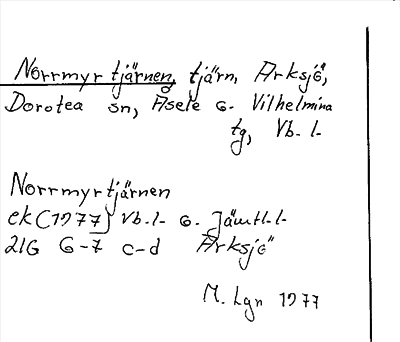 Norrmyrtjärnen, tjärn, Arksjö,
Dorotea sn, Åsele o. Vilhelmina
tg, Vb. l.
Norrmyrtjärnen
ek (1977) Vb. l. o. Jämtl. l.
21G 6-7 c-d Arksjö
M. Lgn 1977